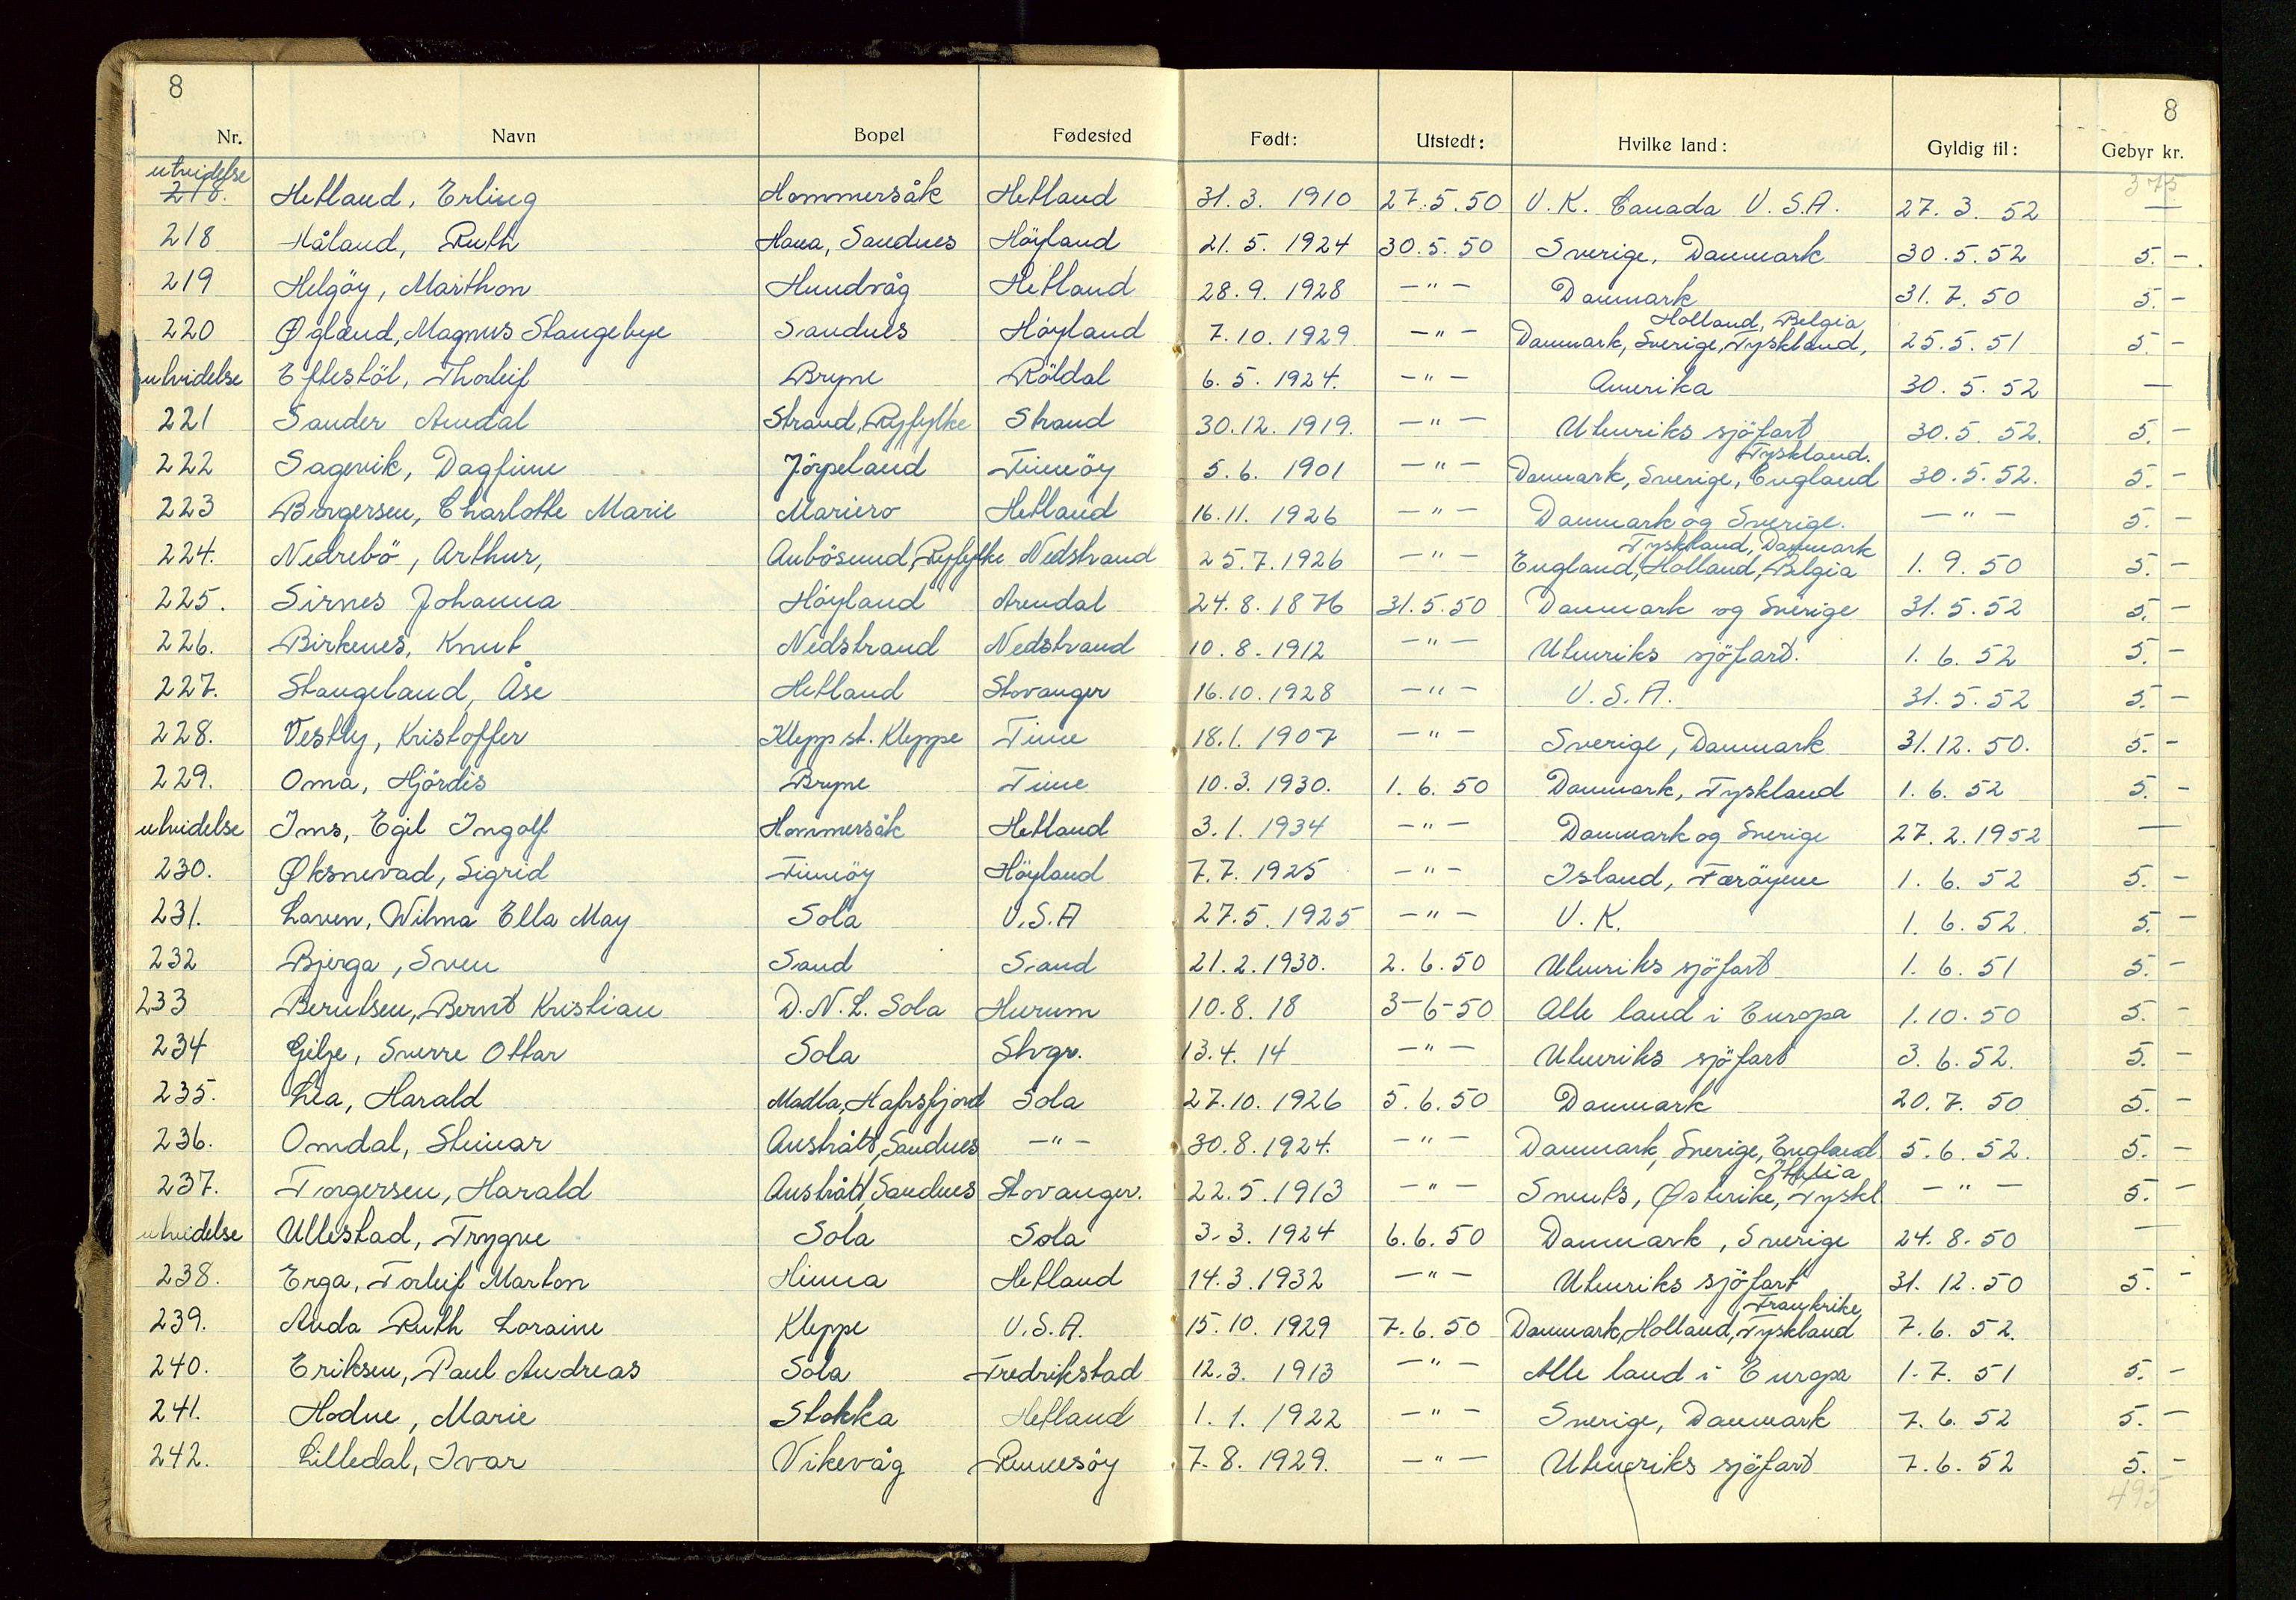 8 8
Nr. Navn Bopel Fødested Født: Utstedt: Hvilke land: Gyldig til: Gebyr kr.
utvidelse 375
218. Hetland, Erling Hommersåk Hetland 31.3. 1910 27.5.50 U.K. Canada U.S.A. 27. 3. 52 —
218 Håland, Ruth Hana, Sandnes Höyland 21.5. 1924 30.5.50 Sverige, Danmark 30.5.52 5. -.
219 Helgöy, Marthon Hundvåg Hetland 28.9. 1928 -"- Danmark 31.7. 50 5. -
Holland, Belgia
220 Øgland, Magnus Stangebye Sandnes Höyland 7.10. 1929 -"- Danmark, Sverige, Tyskland, 25.5.51 5 -
utvidelse Eftestöl, Thorleif Bryne Röldal 6.5. 1924. -"- Amerika 30.5.52 —
221 Sander Amdal Strand, Ryfylke Strand 30.12. 1919. -"- Utenriks sjöfart 30.5. 52. 5. -
Tyskland.
222 Sagevik, Dagfinn Jörpeland Finnöy 5.6. 1901 -"- Danmark, Sverige, England 30.5.52. 5. -
223 Borgersen, Charlotte Marie Mariero Hetland 16.11. 1926 -"- Danmark og Sverige. -"- 5. -
Tyskland, Danmark
224. Nedrebö, Arthur, Anbösund, Ryfylke Nedstrand 25.7.1926 -"- England, Holland, Belgia 1. 9. 50 5. -
225. Sirnes Johanna Höyland Arendal 24.8.1876 31.5.50 Danmark og Sverige 31.5.52 5. -
226. Birkenes, Knut Nedstrand Nedstrand 10.8.1912 -"- Utenriks sjöfart. 1. 6. 52 5. -
227. Stangeland, Åse Hetland Stavanger 16.10.1928 -"- U.S.A. 31.5.52 5. -
228. Vestly, Kristoffer Klepp st. Kleppe Time 18.1. 1907 -"- Sverige, Danmark 31.12.50. 5. -
229. Oma, Hjördis Bryne Time 10.3. 1930. 1. 6. 50 Danmark, Tyskland 1. 6. 52 5. -
utvidelse Ims, Egil Ingolf Hommersåk Hetland 3.1. 1934 -"- Danmark og Sverige 27.2.1952 —
230. Øksnevad, Sigrid Finnöy Höyland 7.7. 1925 -"- Island, Færöyene 1. 6. 52 5. -
231. Laven, Wilma Ella May Sola U.S.A 27.5. 1925 -"- U.K. 1. 6. 52. 5. -
232 Bjerga, Sven Sand Sand 21.2.1930. 2.6.50 Utenriks sjöfart 1. 6. 51 5. -
233 Berntsen, Bernt Kristian D.N.L. Sola Hurum 10.8. 18 3-6-50 Alle land i Europa 1.10.50 5. -
234 Gilje, Sverre Ottar Sola Stvgr. 13.4. 14 -"- Utenriks sjöfart 3.6.52. 5. -
235. Lea, Harald Madla, Hafrsfjord Sola 27.10. 1926 5.6.50 Danmark 20.7. 50 5. -
236. Omdal, Steinar Austrått, Sandnes -"- 30.8.1924. -"- Danmark, Sverige, England 5.6.52. 5. -
Italia
237. Torgersen, Harald Austrått, Sandnes Stavanger. 22.5.1913 -"- Sveits, Østerike, Tyskl -"- 5. -
utvidelse Ullestad, Trygve Sola Sola 3.3. 1924 6.6.50 Danmark, Sverige 24.8.50 —
238. Erga, Torleif Marton Hinna Hetland 14.3.1932 -"- Utenriks sjöfart 31. 12. 50 5. -
Frankrike
239. Anda Ruth Loraine Kleppe U.S.A. 15.10. 1929 7.6.50 Danmark, Holland, Tyskland 7.6. 52.
240. Eriksen, Paul Andreas Sola Fredrikstad 12.3. 1913 -"- Alle land i Europa 1.7. 51 5. -
241. Hodne, Marie Stokka Hetland 1. 1. 1922 -"- Sverige, Danmark 7.6. 52 5. -
242. Lilledal, Ivar Vikevåg Rennesöy 7.8. 1929. -"- Utenriks sjöfart 7.6. 52 5. -